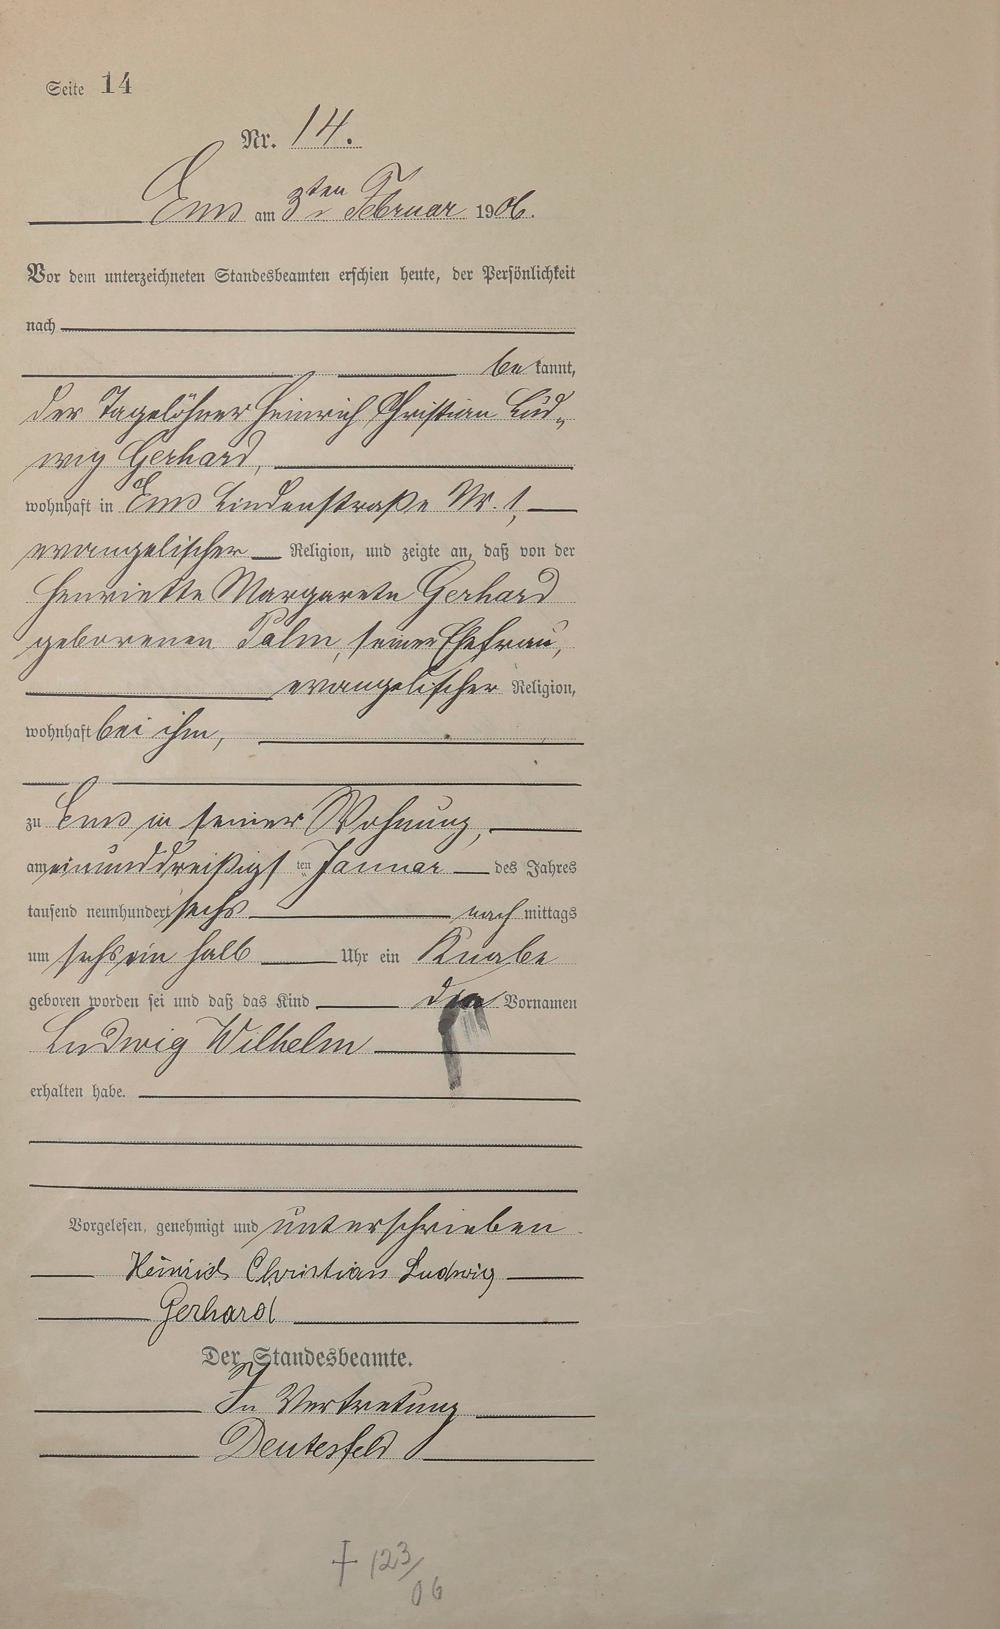 Seite 14
Nr. 14.
Ems am 3ten Februar 1906.
Vor dem unterzeichneten Standesbeamten erschien heute, der Persönlichkeit
nach
bekannt,
der Tagelöhner Heinrich Christian Lud-
wig Gerhard,
wohnhaft in Ems Lindenstraße Nr. 1,
evangelischer Religion, und zeigte an, daß von der
Henriette Margarete Gerhard
geborenen Palm, seiner Ehefrau,
evangelischer Religion,
wohnhaft bei ihm,
zu Ems in seiner Wohnung,
am einunddreißigsten Januar des Jahres
tausend neunhundert sechs nachmittags
um sechs ein halb Uhr ein Knabe
geboren worden sei und daß das Kind die Vornamen
Ludwig Wilhelm
erhalten habe.
Vorgelesen, genehmigt und unterschrieben
Heinrich Christian Ludwig
Gerhard
Der Standesbeamte.
In Vertretung
Deutesfeld
† 123/
06